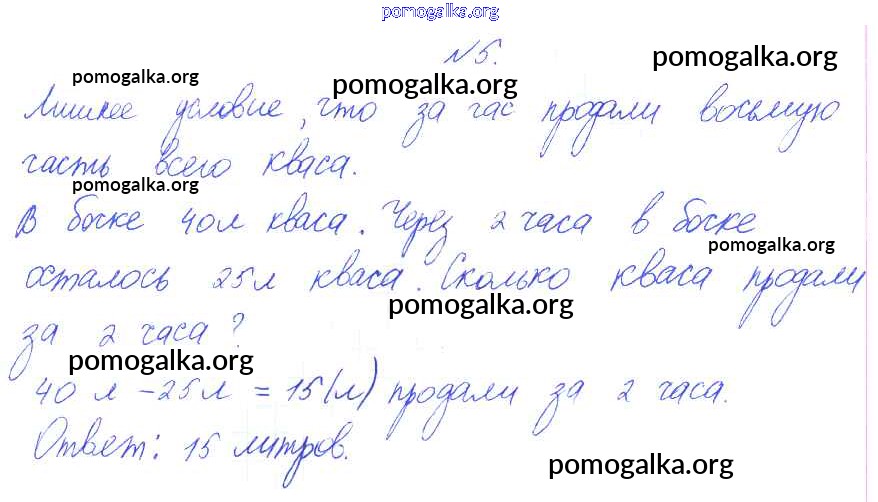 pomogalka.org
N 5.
pomogalka.org
pomogalka.org
pomogalka.org
Лишнее условие, что за час продали восьмую
часть всего кваса.
pomogalka.org
В бочке 40л кваса. Через 2 часа в бочке
pomogalka.org
осталось 25 л кваса. Сколько кваса продали
pomogalka.org
за 2 часа?
pomogalka.org
40 л - 25 л = 15 (л) продали за 2 часа.
Ответ: 15 литров.
pomogalka.org